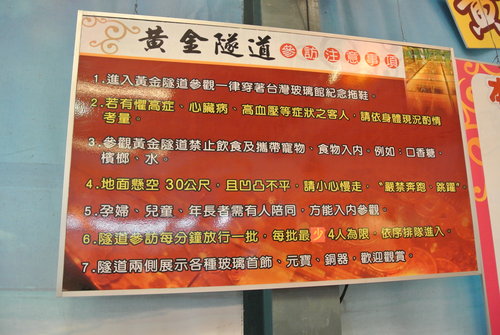 黃金隧道 參訪注意事項
1.進入黃金隧道參觀一律穿著台灣玻璃館紀念拖鞋。
2.若有懼高症、心臟病、高血壓等症狀之客人，請依身體現況酌情
考量。
3.參觀黃金隧道禁止飲食及攜帶寵物、食物入內，例如：口香糖、
檳榔、水。
4.地面懸空30公尺，且凹凸不平，請小心慢走，“嚴禁奔跑、跳躍”。
5.孕婦、兒童、年長者需有人陪同，方能入內參觀。
6.隧道參訪每分鐘放行一批，每批最少4人為限，依序排隊進入。
7.隧道兩側展示各種玻璃首飾、元寶、銅器，歡迎觀賞。